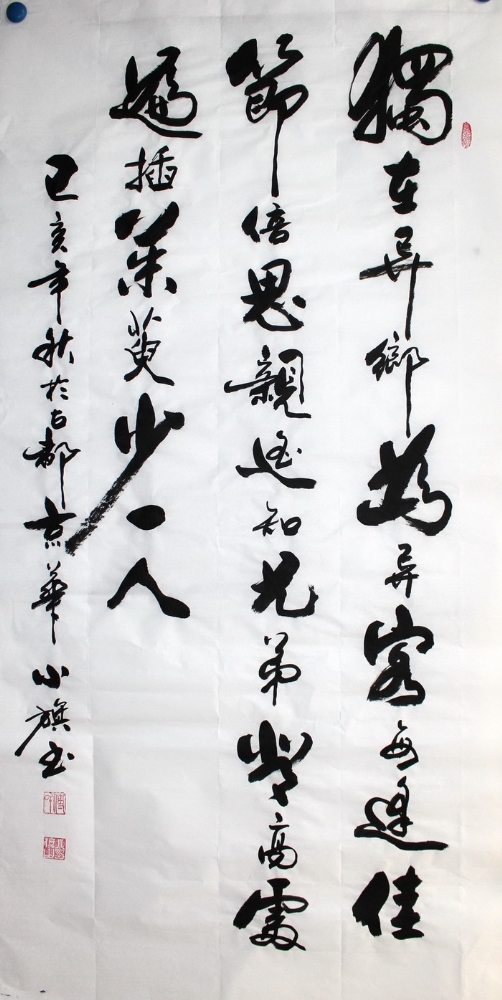 獨在异鄉為异客每逢佳
節倍思親遙知兄弟登高處
遍插茱萸少一人
己亥年秋於古都京華小旗书